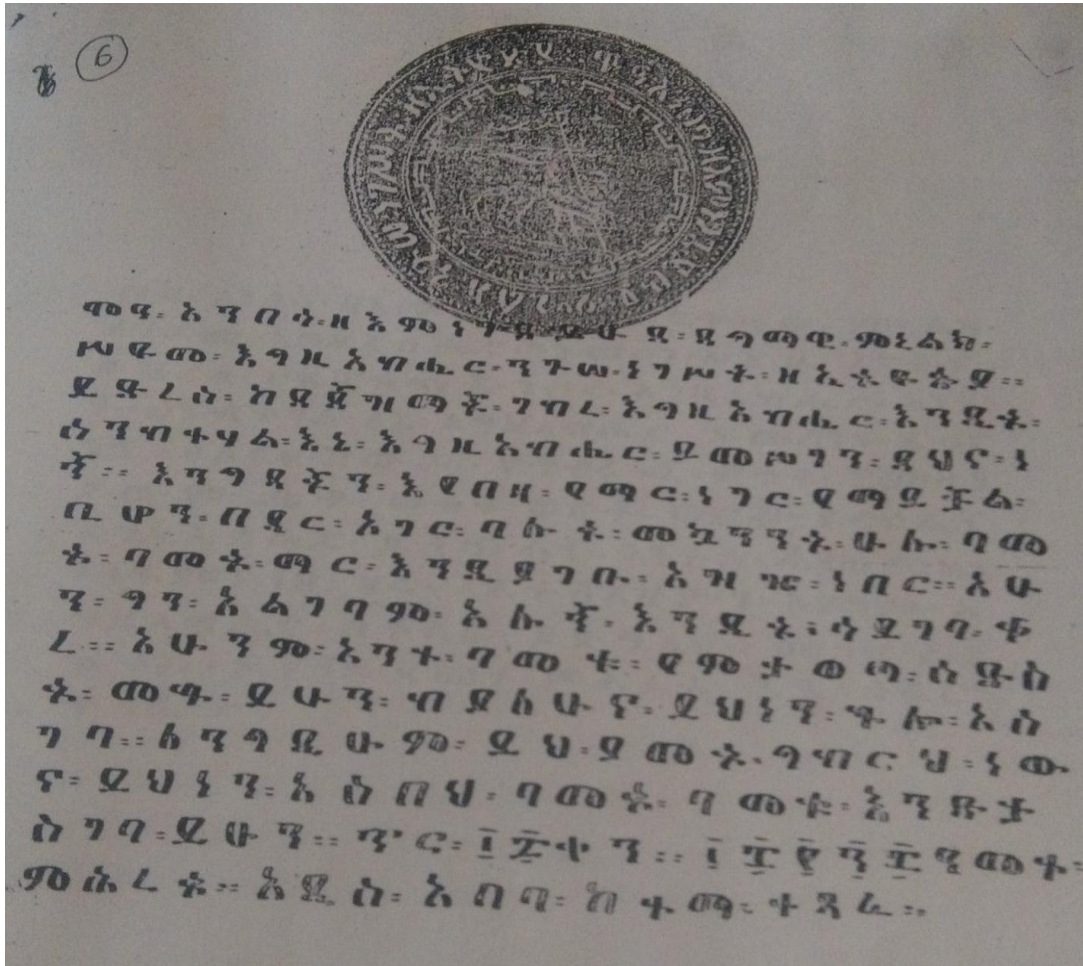 6
ሞዓ፡ አንበሳ፡ዘእምነገደ፡ይሁዳ፡ዳግማዊ፡ምኒልክ፡
ሥዩመ፡እግዚአብሔር፡ንጉሠ፡ነገሥት፡ዘኢትዮጵያ።
ይድረስ፡ከደጃዝማች፡ገብረ፡እግዚአብሔር፡እንዴት፡
ሰንብተሃል፡እኔ፡እግዚአብሔር፡ይመሥገን፡ደህና፡ነ
ኝ። እንግዳችን፡
ቢሆን፡በዳር፡አገር፡ባሉት፡መኳንንት፡ሁሉ፡ባመ
ት፡ባመት፡ማር፡እንዲያገቡ፡አዝዤ፡ነበር።አሁ
ን፡ግን፡አልገባም፡አሉኝ፡እንዴት፡ሳይገባ፡ቀ
ረ።አሁንም፡አንተ፡ባመቱ፡የምታወጣ፡ስድስ
ት፡መቶ፡ይሁን፡ብያለሁና፡ይህነን፡ቶሎ፡አስ
ገባ።ለንግዲሁም፡ይህ፡ያመት፡ግብርህ፡ነው
ና፡ይህነን፡እሰብህ፡ባመቱ፡ባመቱ፡እንድታ
ስገባ፡ይሁን።
ምሕረት።አዲስ፡አበባ፡ከተማ፡ተጻፈ።